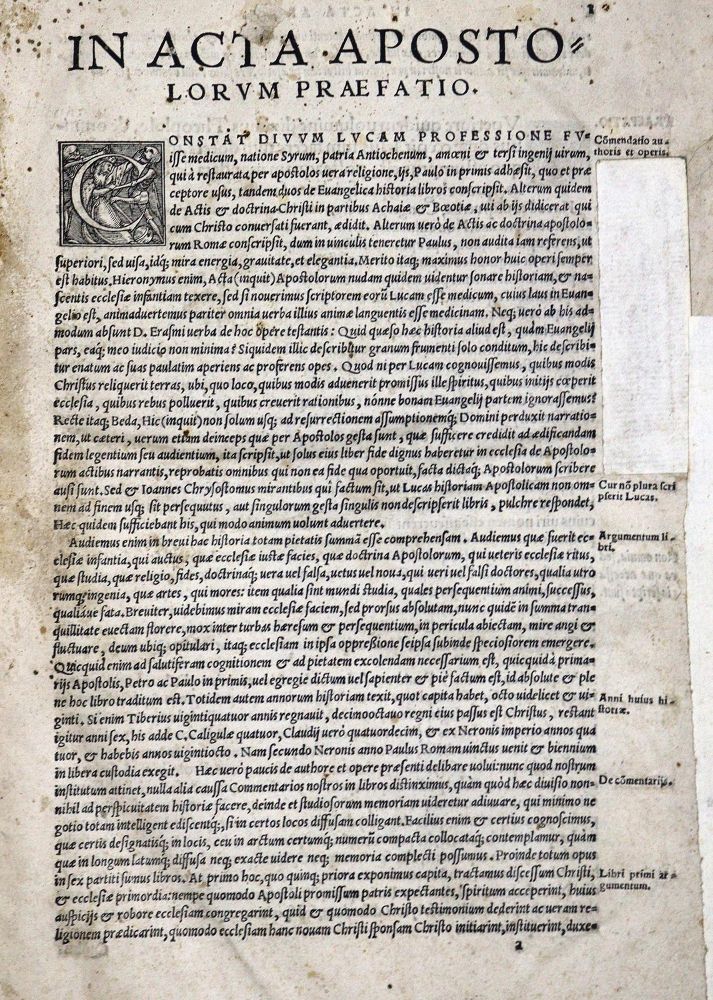 1
IN ACTA APOSTO=
LORVM PRAEFATIO.
CONSTAT DIVVM LVCAM PROFESSIONE FV-
isse medicum, natione Syrum, patria Antiochenum, amœni & tersi ingenij uirum,
qui à restaurata per apostolos uera religione, ijs, Paulo in primis adhæsit, quo et præ
ceptore usus, tandem duos de Euangelica historia libros conscripsit. Alterum quidem
de Actis & doctrina Christi in partibus Achaiæ & Bœotiæ, uti ab ijs didicerat qui
cum Christo conuersati fuerant, ædidit. Alterum uerò de Actis ac doctrina apostolo-
rum Romæ conscripsit, dum in uinculis teneretur Paulus, non audita iam referens, ut
superiori, sed uisa, idq; mira energia, grauitate, et elegantia. Merito itaq; maximus honor huic operi semper
est habitus. Hieronymus enim, Acta (inquit) Apostolorum nudam quidem uidentur sonare historiam, & na-
scentis ecclesiæ infantiam texere, sed si nouerimus scriptorem eorū Lucam esse medicum, cuius laus in Euan-
gelio est, animaduertemus pariter omnia uerba illius animæ languentis esse medicinam. Neq; uerò ab his ad-
modum absunt D. Erasmi uerba de hoc opere testantis: Quid quæso hæc historia aliud est, quàm Euangelij
pars, eaq; meo iudicio non minima? Siquidem illic describitur granum frumenti solo conditum, hic describi-
tur enatum ac suas paulatim aperiens ac proferens opes. Quod ni per Lucam cognouissemus, quibus modis
Christus reliquerit terras, ubi, quo loco, quibus modis aduenerit promissus ille spiritus, quibus initijs cœperit
ecclesia, quibus rebus polluerit, quibus creuerit rationibus, nónne bonam Euangelij partem ignorassemus?
Recte itaq; Beda, Hic (inquit) non solum usq; ad resurrectionem assumptionemq; Domini perduxit narratio-
nem, ut cæteri, uerum etiam deinceps quæ per Apostolos gesta sunt, quæ sufficere credidit ad ædificandam
fidem legentium seu audientium, ita scripsit, ut solus eius liber fide dignus haberetur in ecclesia de Apostolo-
rum actibus narrantis, reprobatis omnibus qui non ea fide qua oportuit, facta dictaq; Apostolorum scribere
ausi sunt. Sed & Ioannes Chrysostomus mirantibus qui factum sit, ut Lucas historiam Apostolicam non om-
nem ad finem usq; sit persequutus, aut singulorum gesta singulis non descripserit libris, pulchre respondet,
Hæc quidem sufficiebant his, qui modo animum uolunt aduertere.
Audiemus enim in breui hac historia totam pietatis summā esse comprehensam. Audiemus quæ fuerit ec-
clesiæ infantia, qui auctus, quæ ecclesiæ iustæ facies, quæ doctrina Apostolorum, qui ueteris ecclesiæ ritus,
quæ studia, quæ religio, fides, doctrinaq; uera uel falsa, uetus uel noua, qui ueri uel falsi doctores, qualia utro
rumq; ingenia, quæ artes, qui mores: item qualia sint mundi studia, quales persequentium animi, successus,
qualiaue fata. Breuiter, uidebimus miram ecclesiæ faciem, sed prorsus absolutam, nunc quidē in summa tran-
quillitate euectam florere, mox inter turbas hæresum & persequentium, in pericula abiectam, mire angi &
fluctuare, deum ubiq; opitulari, itaq; ecclesiam in ipsa oppressione seipsa subinde speciosiorem emergere.
Quicquid enim ad salutiferam cognitionem & ad pietatem excolendam necessarium est, quicquid à prima-
rijs Apostolis, Petro ac Paulo in primis, uel egregie dictum uel sapienter & piè factum est, id absolute & ple
ne hoc libro traditum est. Totidem autem annorum historiam texit, quot capita habet, octo uidelicet & ui-
ginti. Si enim Tiberius uigintiquatuor annis regnauit, decimooctauo regni eius passus est Christus, restant
igitur anni sex, his adde C. Caligulæ quatuor, Claudij uerò quatuordecim, & ex Neronis imperio annos qua
tuor, & habebis annos uigintiocto. Nam secundo Neronis anno Paulus Romam uinctus uenit & biennium
in libera custodia exegit. Hæc uerò paucis de authore et opere præsenti delibare uolui: nunc quod nostrum
institutum attinet, nulla alia caussa Commentarios nostros in libros distinximus, quàm quòd hæc diuisio non-
nihil ad perspicuitatem historiæ facere, deinde et studiosorum memoriam uideretur adiuuare, qui minimo ne
gotio totam intelligent ediscentq;, si in certos locos diffusam colligant. Facilius enim & certius cognoscimus,
quæ certis designatisq; in locis, ceu in arctum certumq; numerū compacta collocataq; contemplamur, quàm
quæ in longum latumq; diffusa neq; exacte uidere neq; memoria complecti possumus. Proinde totum opus
in sex partiti sumus libros. At primo hoc, quo quinq; priora exponimus capita, tractamus discessum Christi,
& ecclesiæ primordia: nempe quomodo Apostoli promissum patris expectantes, spiritum acceperint, huius
auspicijs & robore ecclesiam congregarint, quid & quomodo Christo testimonium dederint ac ueram re-
ligionem prædicarint, quomodo ecclesiam hanc nouam Christi sponsam Christo initiarint, instituerint, duxe-
2
Cōmendatio au-
thoris et operis.
Cur nō plura scri
pserit Lucas.
Argumentum li-
bri.
Anni huius hi-
storiæ.
De cōmentarijs.
Libri primi ar-
gumentum.